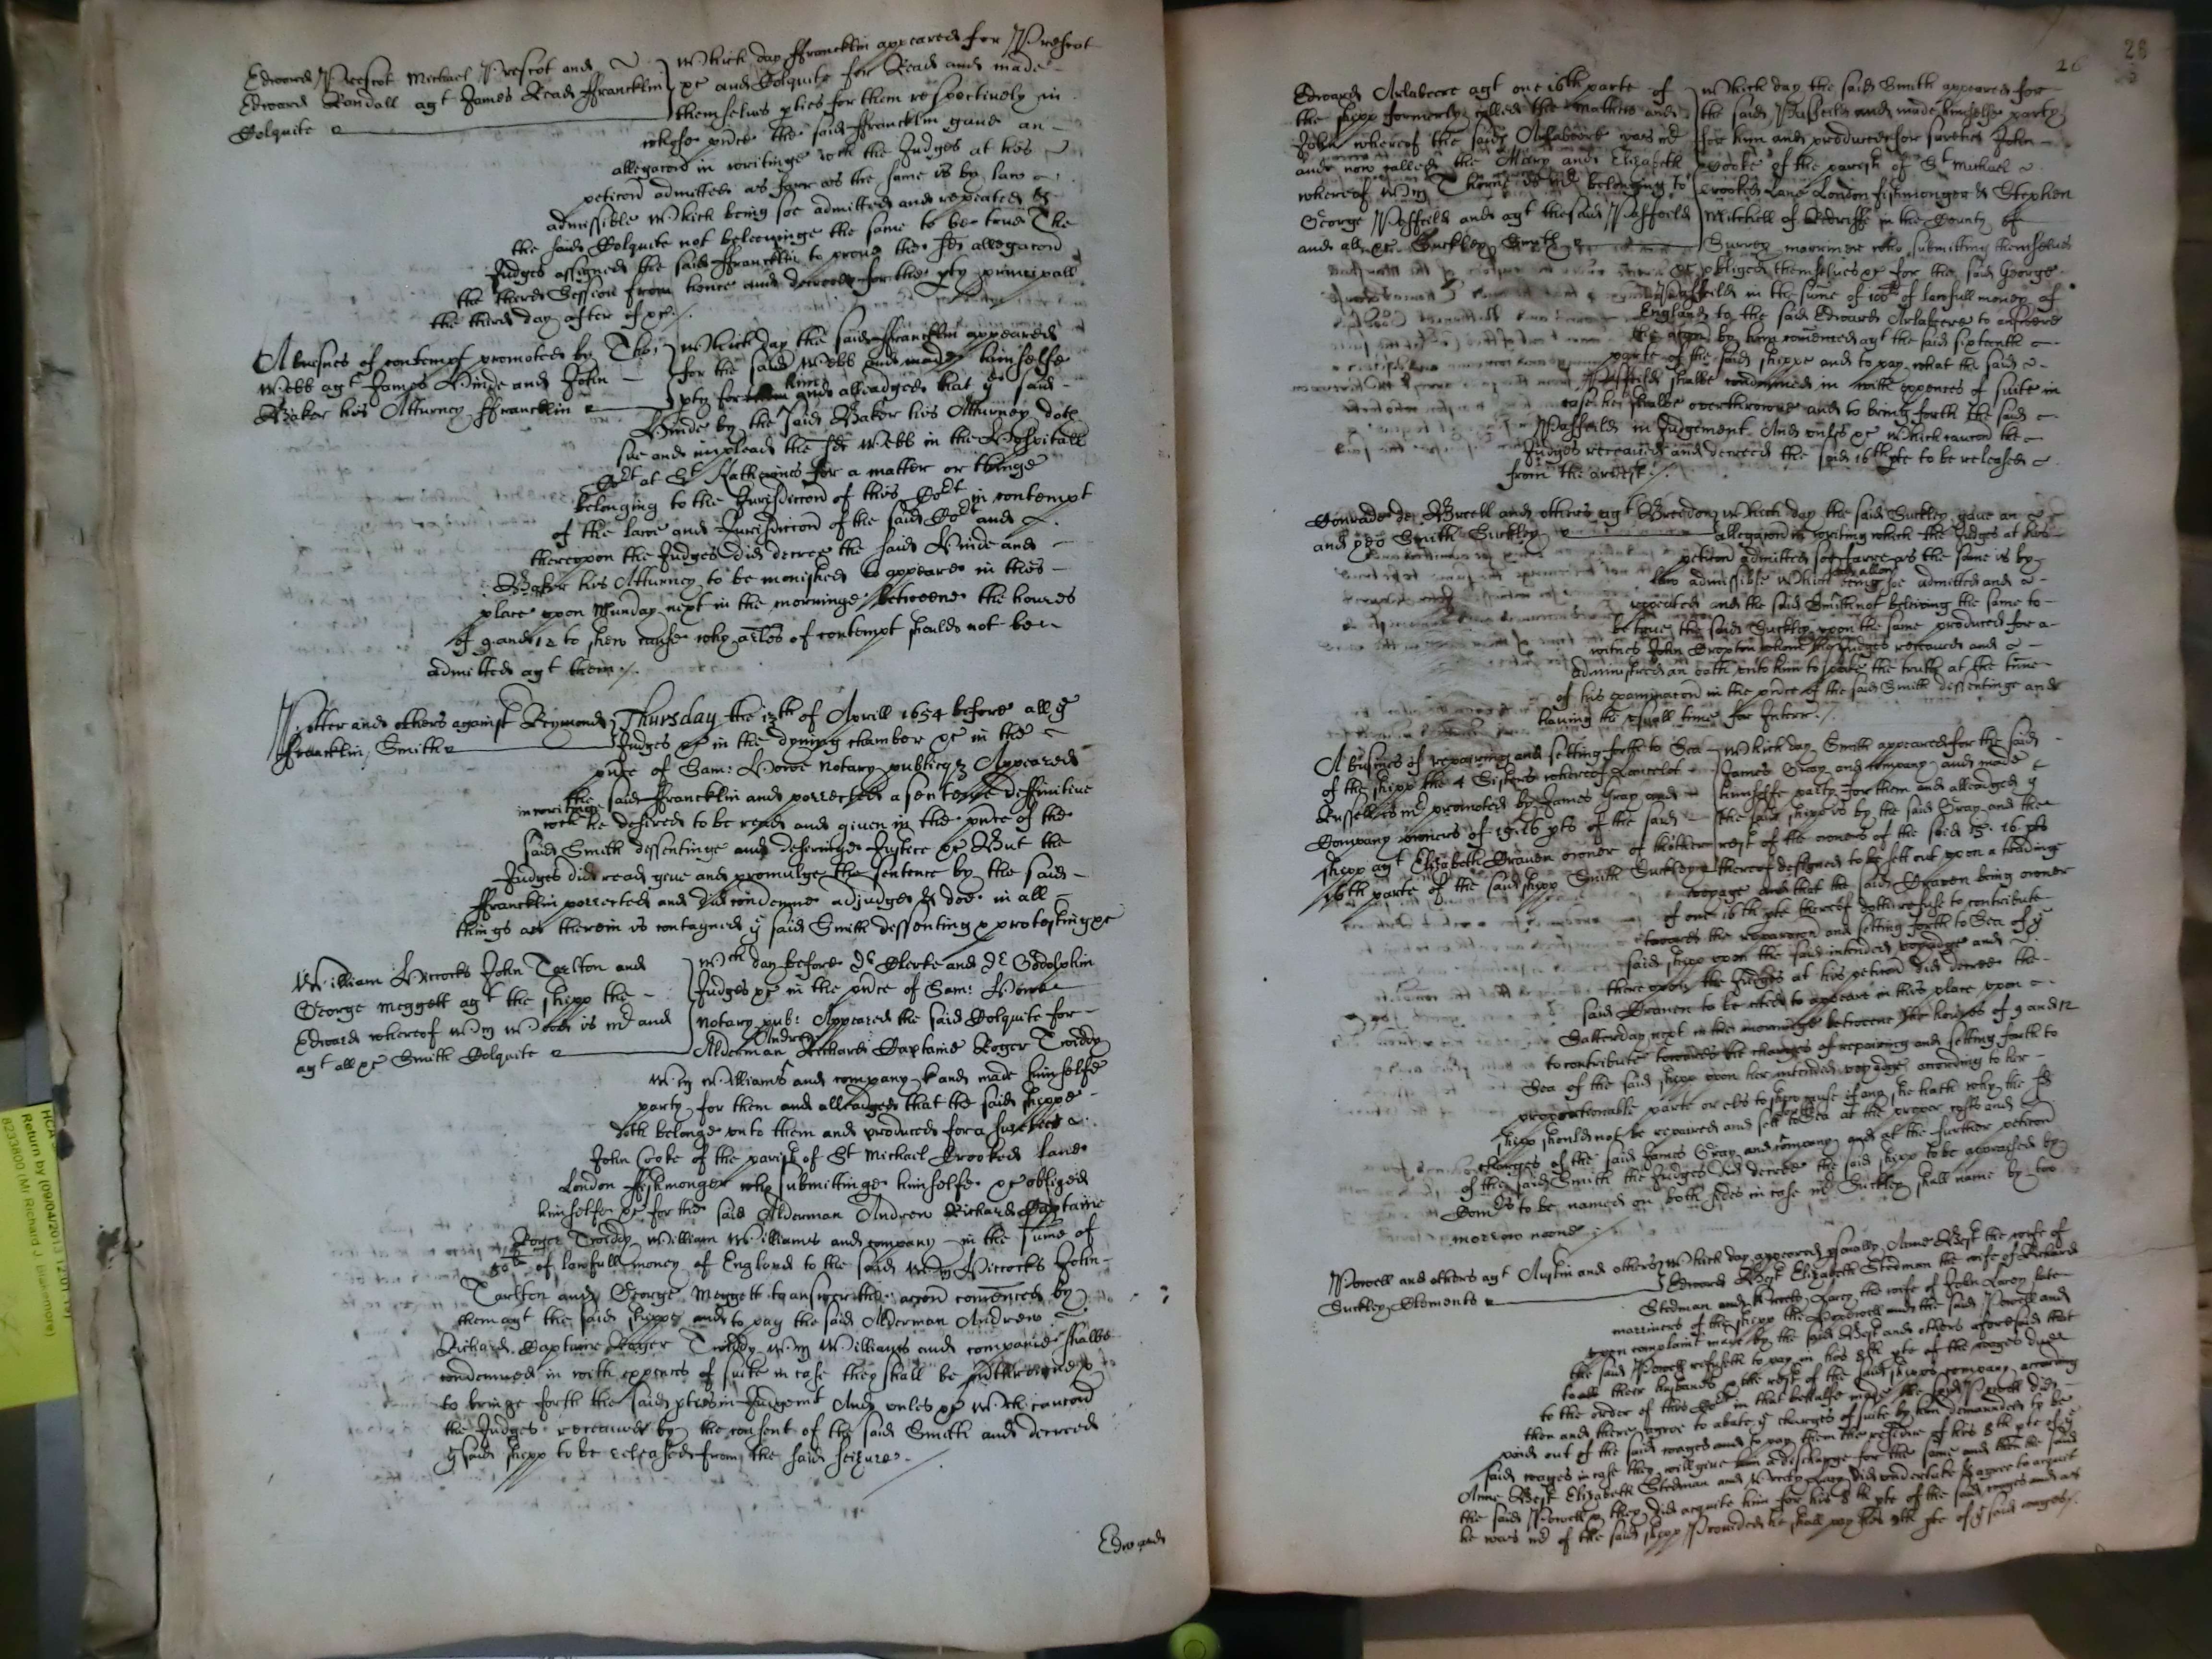 Edward Prescot Michael Prescot and
Edward Randall agt James Read ffrancklin
Colquite
Which day ffrancklin appeared for Prescot
xc and Colquite for Read and made
themselves pties for them respectively in
whose pnce the said ffrancklin gave an
allegacon in writinge wch the Judges at his
peticon admitted as farr as the same is by law
admissible Which being soe admitted and repeated &
the said Colquite not beleevinge the same to be true The
Judges assigned the said ffrancklin to prove the sd allegacon
the third Session from hence and decreed for the pty principall
the third day after if xc./
A busines of contempt promoted by Tho:
Webb agt James Hinde and John
Baker his Atturney ffrancklin
Which day the said ffrancklin appeared
for the said Webb and made himselfe
pty for him and alleadged that ye said
Hinde by the said Baker his Atturney doth
sue and impleade the sd Webb in the Hospitall
Cort at St Katherines for a matter or thinge
belonging to the Jurisdiccon of this Cort in contempt
of the lawe and Jurisdiccon of the said Cort and
thereupon the Judges did decree the said Hinde and
Baker his Atturney to be monished to appeare in this
place upon Munday next in the morninge betweene the houres
of 9 and 12 to shew cause why arles of contempt should not be
admitted agt them./
Potter and others against Reymond
ffrancklin, Smith
Thursday the 13th of Aprill 1654 before all ye
Judges xc in the dyning chamber xc in the
pnce of Sam: Howe Notary publique Appeared
the said ffrancklin and porrected a sentence deffinitive
in writinge
wch he desired to be read and given in the pnce of the
said Smith dessentinge and desiringe Justice xc But the
Judges did read give and promulge the sentence by the said
ffrancklin porrected and did condemne adjudge & doe in all
things as therein is contayned ye said Smith dessenting & protesting xc
William Hiccocks John Tarlton and
George Meggett agt the shipp the
Edward whereof Wm Wood is mr and
agt all xc Smith Colquite
Wch day before Dr Clerke and Dr Godolphin
Judges xc in the pnce of Sam: Howe
Notary pub: Appeared the said Colquite for
Andrew
Alderman Richard Captaine Roger Twiddy
Wm Williams and company and made himselfe
party for them and alleadged that the said shippe
doth belonge unto them and produced for a suretie
John Cooke of the parish of St Michael Crooked lane
London ffishmonger who submittinge himselfe xc obliged
himselfe xc for the said Alderman Andrew Richard Captaine
Roger Twiddy William Williams and company in the sume of
50li of lawfull money of England to the said Wm Hiccocks John
Tarlton and George Meggett to answer the accon comenced by
them agt the said shippe and to pay the said Alderman Andrew
Richard Captaine Roger Twiddy Wm Williams and companie shalbe
condemned in with expences of suite in case they shall be
to bringe forth the said pties in Judgemt And unles xc Wch caucon
the Judges received by the consent of the said Smith and decreed
ye said shipp to be released from the said seizure.
Edward
26
28
Edward Arlabeere agt one 16th parte of
the shipp formerly called the Mathew and
John whereof the said Arlabeere was mr
and now called the Mary and Elizabeth
whereof Wm Thorne is mr belonging to
George Passfeild and agt the said Passfeild
and all xc. Suckley Smyth
Which day the said Smith appeared for
the said Passfeild and made himselfe party
for him and produced for sureties John
Cooke of the parish of St Michael
Crooked Lane London fishmonger & Stephen
Mitchell of Redriffe in the County of
Surrey marriner who submitting themselves
xc obliged themselves xc for the said George
Passfeild in the sume of 100li of lawfull money of
England to the said Edward Arlabeere to answere
the accon by him comenced agt the said sixteenth
parte of the said shippe and to pay what the said
Passfeild shalbe condemned in with expences of suite in
case he shalbe overthrowne and to bring forth the said
Passfeild in Judgement And unles xc Which caucon the
Judges received and decreed the said 16th pte to be released
from the arrest./
Conrade de Breell and others agt Breedon
and xco Smith Suckley
Which day the said Suckley gave an
allegacon in writing which the Judges at his
peticon admitted soe farre as the same is by
law admissible Which being soe admitted and
repeated and the said Smith not beleiving the same to
be true the said Suckley upon the same produced for a
witnes John Croxton whom the Judges received and
administred an oath unto him to speake the truth at the time
of his examinacon in the pnce of the said Smith dissentinge and
having the usuall time for Interr./
A busines of repairing and setting forth to Sea
of the shipp the 4 Sisters whereof Lancelot
Russell is mr promoted by James Gray and
Company owners of 15. 16 pts of the said
shipp agt Elizabeth Craven owner of thother
16th parte of the said shipp Smith Suckley
Which day Smith appeared for the said
James Gray and company and made
himselfe party for them and alleadged yt
the said shipp is by the said Gray and the
rest of the owners of the said 15. 16 pts
thereof designed to be sett out upon a trading
voyage and that the said Craven being owner
of one 16th pte thereof doth refuse to contribute
towards the reparacon and setting forth to Sea of ye
said shipp upon the said intended voyadge and
thereupon the Judges at his peticon did decree the
said Craven to be cited to appeare in this place upon
Satterday next in the morninge betweene the houres of 9 and 12
to contribute towards the charges of repairing and setting forth to
Sea of the said shipp upon her intended voyadge according to her
proportionable parte or els to shew cause if any she hath why the sd
shipp should not be repaired and sett to Sea at the proper costs and
charges of the said James Gray and company and at the further peticon
of the said Smith the Judges did decree the said shipp to be appraised by
Comrs to be named on both sides in case mr Suckley shall name by too
morrow noone
Powell and others agt Austin and others
Suckley, Clements
Which day appeared psonally Anne Best the wife of
Edward Best Elizabeth Stedman the wife of Richard
Stedman and Lacey the wife of John Lacey late
marriners of the shipp the and the said Powell and
upon complaint made by the said Best and others aforesaid that
the said Powell refuseth to pay in his 8th pte of the wages due
to all their husbands & the rest of the said shipps company according
to the order of this Cort in that behalfe made the said Powell did
then and there agree to abate ye charges of suite by him demanded to be
paid out of the said wages and to pay them the residue of his 8th pte of ye
said wages in case they will give him a discharge for the same and then the said
Anne Best Elizabeth Stedman and Lacey did undertake & agree to acquit
the said Powell & they did acquite him for his 8th pte of the said wages and as
he was mr of the said shipp Provided he shall pay his 8th pte of ye said wages/.
HCA
Return by (09/04/2013 12:01:19)
8233800 (Mr Richard J. Blakemore)